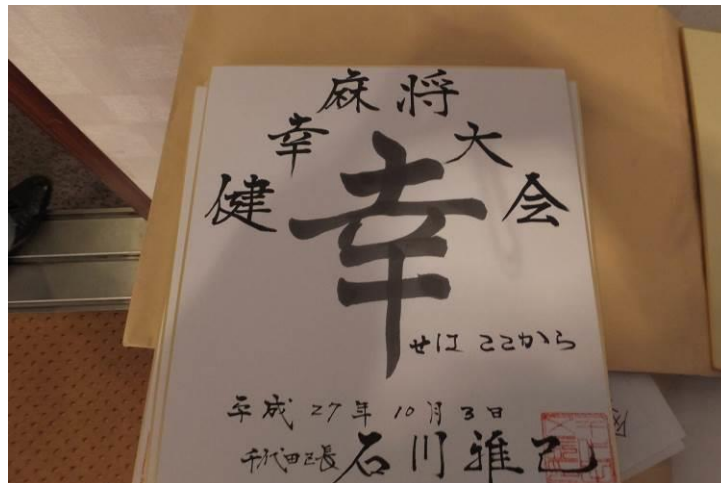 健幸麻将大会
幸
せは ここから
平成27年10月3日
千代田区長 石川雅己